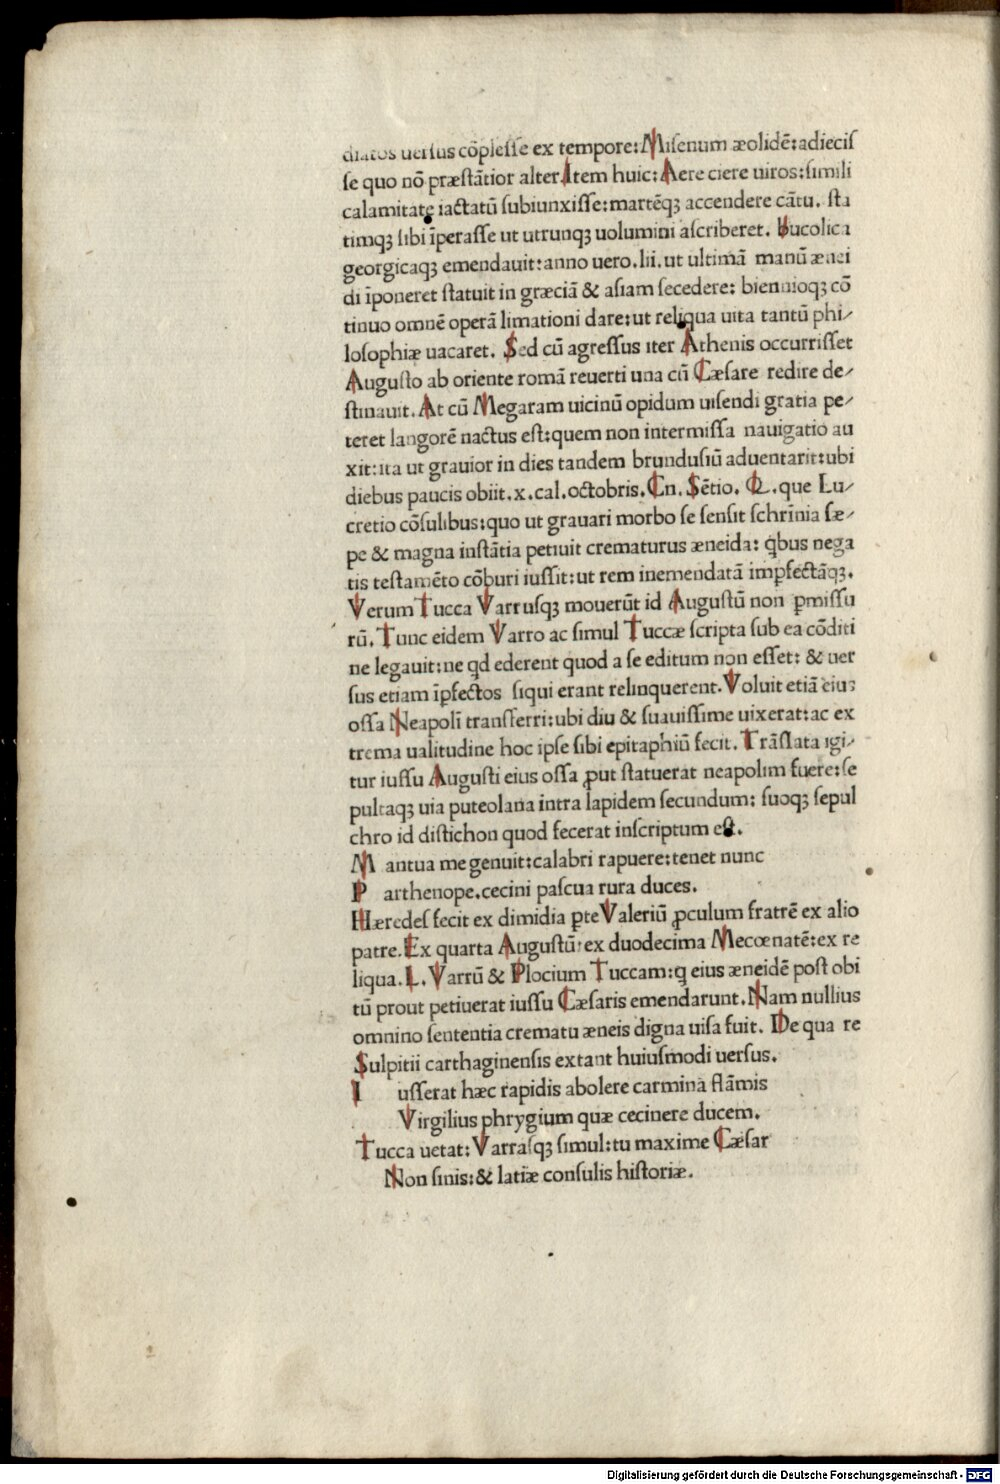 diatos uersus cõplesse ex tempore: Misenum æolidẽ: adiecis
se quo nõ præstãtior alter. Item huic: Aere ciere uiros: simili
calamitate iactatũ subiunxisse: martẽqꝫ accendere cãtu. sta
timqꝫ sibi ĩperasse ut utrunqꝫ uolumini ascriberet. Bucolica
georgicaqꝫ emendauit: anno uero. lii. ut ultimã manũ ænei
di ĩponeret statuit in græciã & asiam secedere: biennioqꝫ cõ
tinuo omnẽ operã limationi dare: ut reliqua uita tantũ phi/
losophiæ uacaret. Sed cũ agressus iter Athenis occurrisset
Augusto ab oriente romã reuerti una cũ Cæsare redire de/
stinauit. At cũ Megaram uicinũ opidum uisendi gratia pe/
teret langorẽ nactus est: quem non intermissa nauigatio au
xit: ita ut grauior in dies tandem brundusiũ aduentarit: ubi
diebus paucis obiit. x. cal. octobris. Cn. Sẽtio. Q. que Lu/
cretio cõsulibus: quo ut grauari morbo se sensit schrinia sæ/
pe & magna instãtia petiuit crematurus æneida: q̃bus nega
tis testamẽto cõburi iussit: ut rem inemendatã imꝑfectãqꝫ.
Verum Tucca Varrusqꝫ mouerũt id Augustũ non ꝑmissu
rũ. Tunc eidem Varro ac simul Tuccæ scripta sub ea cõditi
ne legauit: ne qd ederent quod a se editum non esset: & uer
sus etiam ĩꝑfectos siqui erant relinquerent. Voluit etiã eius
ossa Neapolĩ transferri: ubi diu & suauissime uixerat: ac ex
trema ualitudine hoc ipse sibi epitaphiũ fecit. Trãslata igi/
tur iussu Augusti eius ossa ꝓut statuerat neapolim fuere: se
pultaqꝫ uia puteolana intra lapidem secundum: suoqꝫ sepul
chro id distichon quod fecerat inscriptum est.
M antua me genuit: calabri rapuere: tenet nunc
P arthenope. cecini pascua rura duces.
Hæredes fecit ex dimidia ꝑte Valeriũ ꝓculum fratrẽ ex alio
patre. Ex quarta Augustũ: ex duodecima Mecœnatẽ: ex re
liqua. L. Varrũ & Plocium Tuccam: q eius æneidẽ post obi
tũ prout petiuerat iussu Cæsaris emendarunt. Nam nullius
omnino sententia crematu æneis digna uisa fuit. De qua re
Sulpitii carthaginensis extant huiusmodi uersus.
I usserat hæc rapidis abolere carmina flãmis
Virgilius phrygium quæ cecinere ducem.
Tucca uetat: Varrasqꝫ simul: tu maxime Cæsar
Non sinis: & latiæ consulis historiæ.
Digitalisierung gefördert durch die Deutsche Forschungsgemeinschaft - DFG